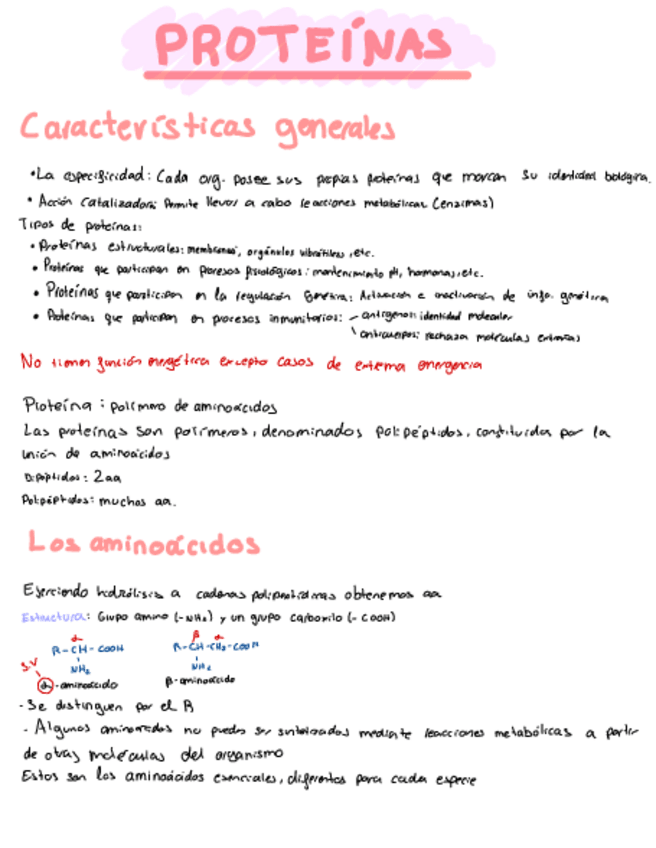 PROTEÍNAS
Características generales
• La especificidad: Cada org. posee sus propias proteínas que marcan su identidad biológica.
• Acción catalizadora: Permite llevar a cabo reacciones metabólicas (enzimas)
Tipos de proteínas:
• Proteínas estructurales: membranas, orgánulos vibrátiles, etc.
• Proteínas que participan en procesos fisiológicos: mantenimiento pH, hormonas, etc.
• Proteínas que participan en la regulación genética: Activación e inactivación de info. genética
• Proteínas que participan en procesos inmunitarios: - antígenos: identidad molecular
\ anticuerpos: rechazar moléculas extrañas
No tienen función energética excepto casos de extrema emergencia
Proteína: polímero de aminoácidos
Las proteínas son polímeros, denominados polipéptidos, constituidas por la
unión de aminoácidos
Dipéptidos: 2aa
Polipéptidos: muchos aa.
Los aminoácidos
Ejerciendo hidrólisis a cadenas polipeptídicas obtenemos aa
Estructura: Grupo amino (-NH₂) y un grupo carboxilo (-COOH)
α β α
R-CH-COOH R-CH-CH₂-COOH
NH₂ NH₂
α-aminoácido β-aminoácido
- Se distinguen por el R
- Algunos aminoácidos no pueden ser sintetizados mediante reacciones metabólicas a partir
de otras moléculas del organismo
Estos son los aminoácidos esenciales, diferentes para cada especie